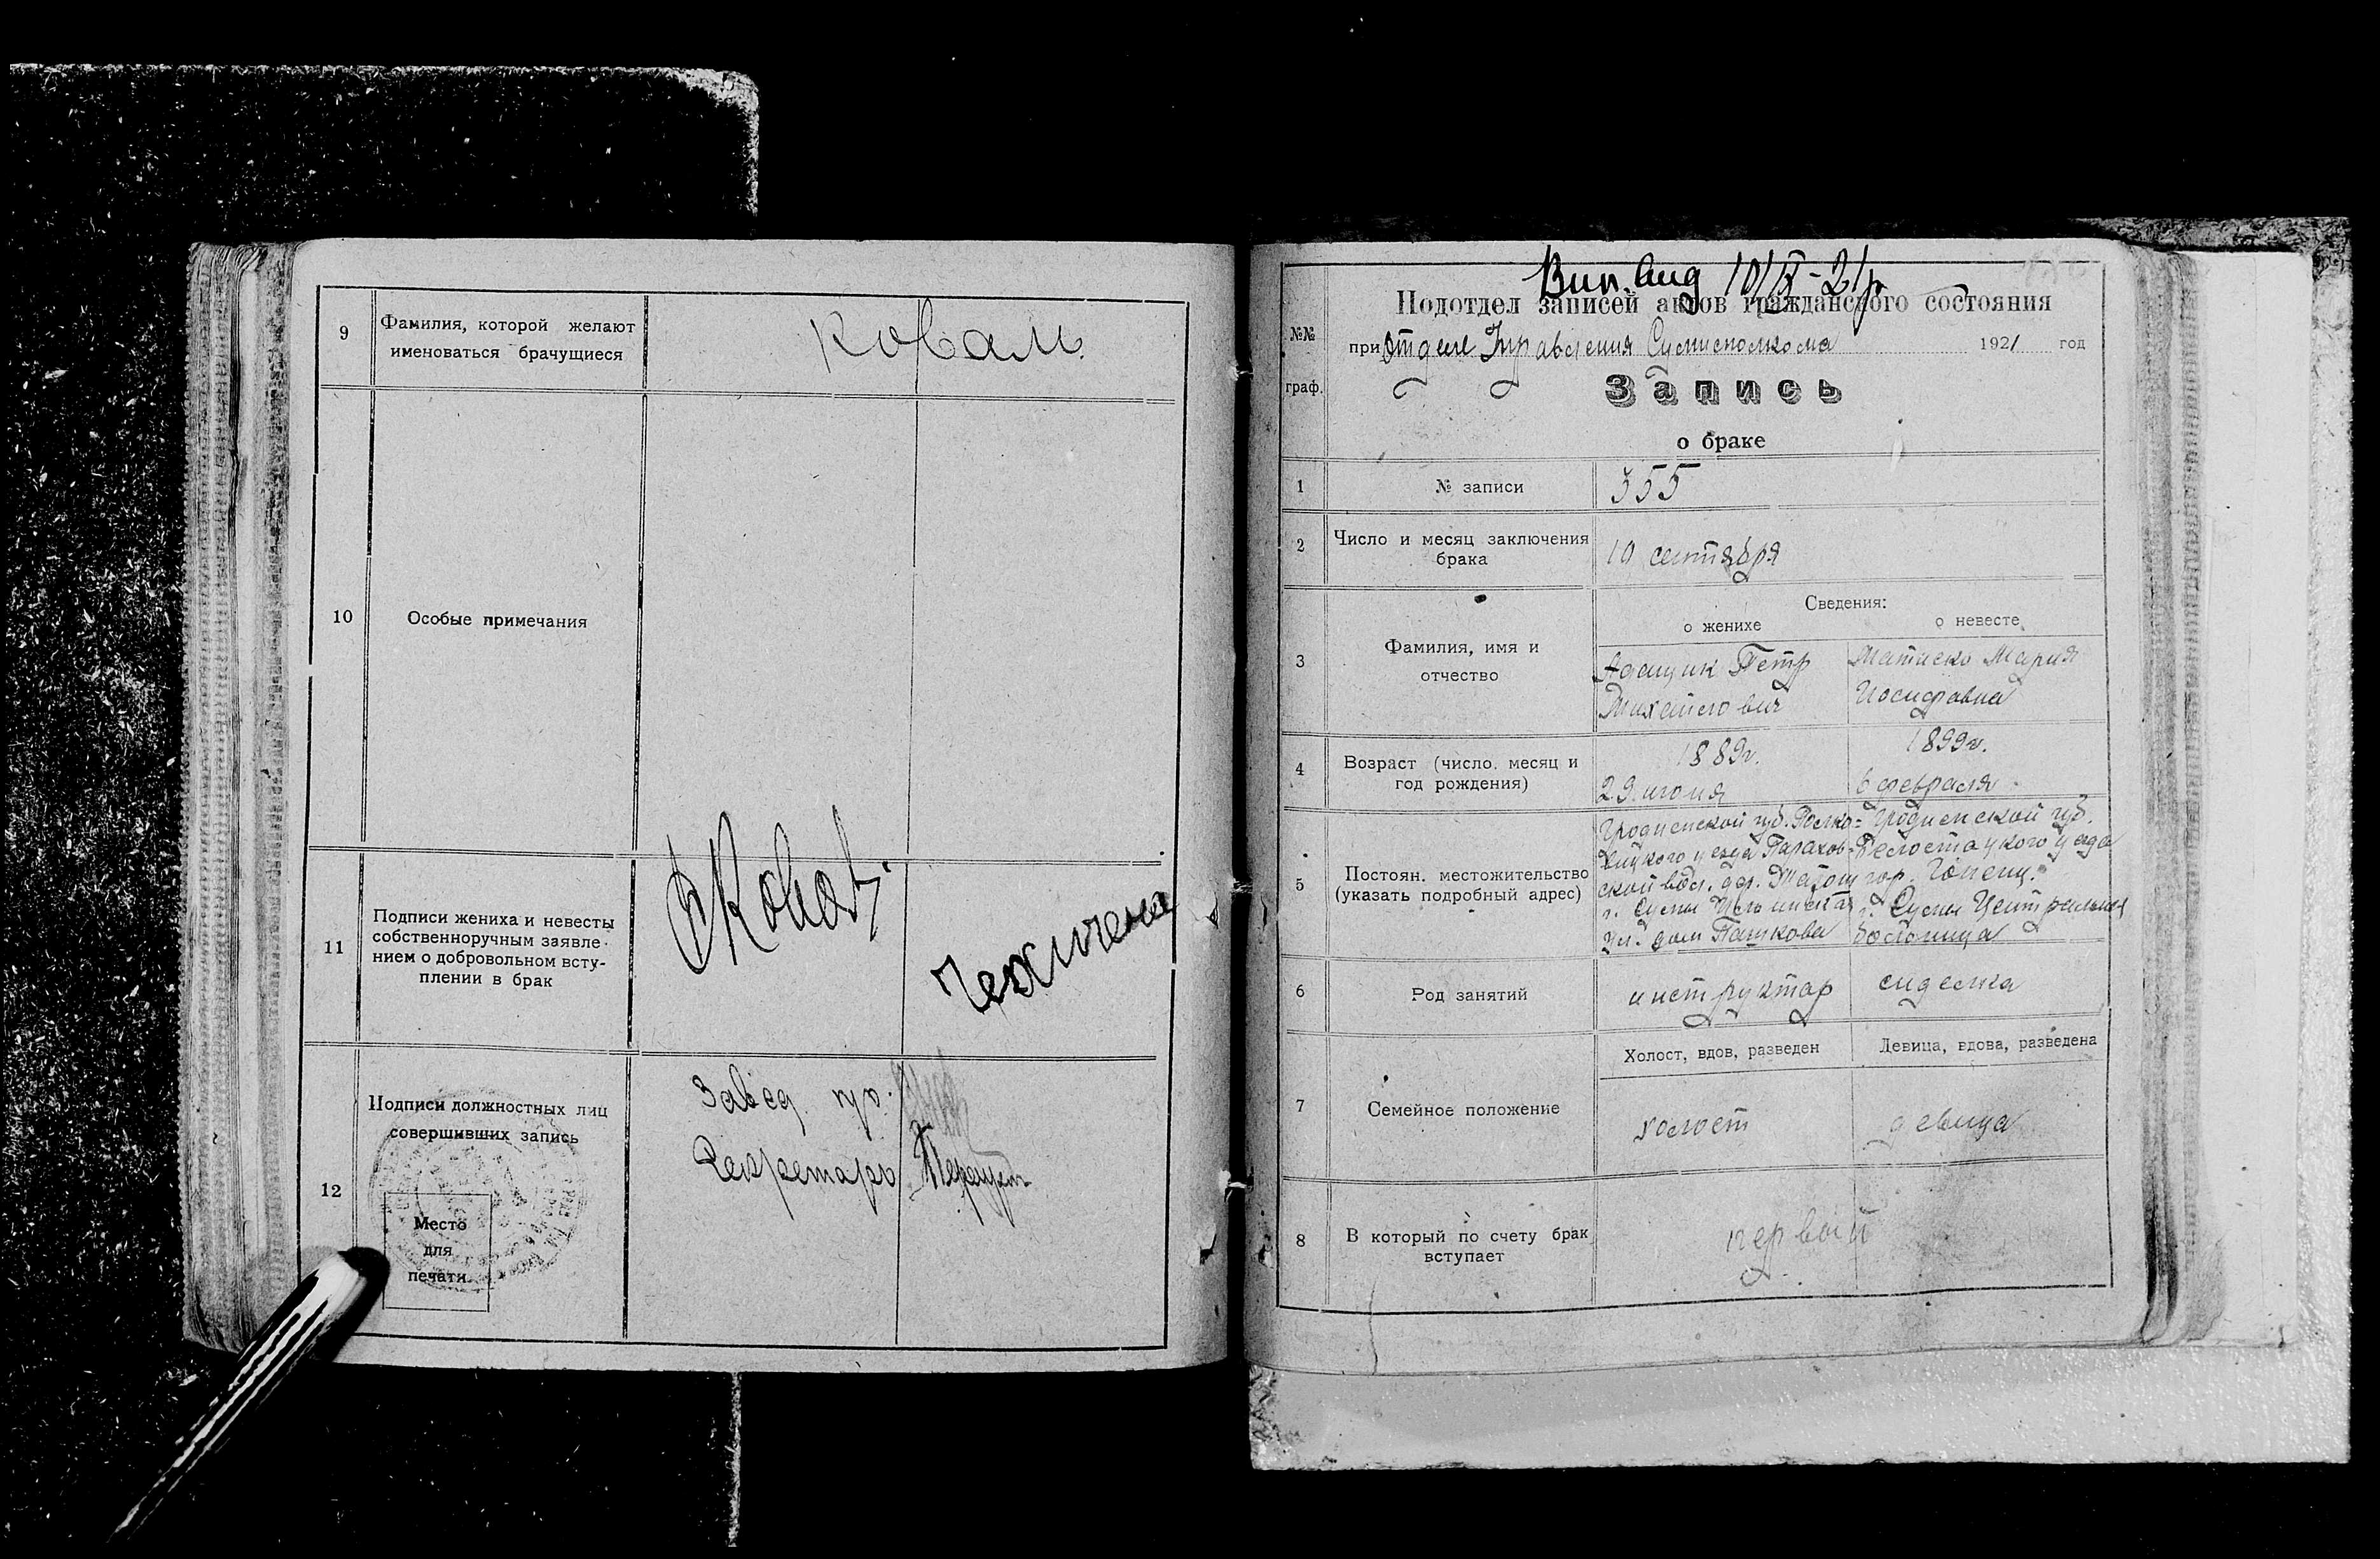 9
Фамилия, которой желают
именоваться брачущиеся
Коваль
10
Особые примечания
11
Подписи жениха и невесты
собственноручным заявле-
нием о добровольном всту-
плении в брак
12
Подписи должностных лиц
совершивших запись
Завед.
Секретарь
Место
для
печати.
Вип. 10/IX-21р
№№
граф.
Подотдел записей актов гражданского состояния
при Отделе Управления Сумисполкома 1921 год
Запись
о браке
1
№ записи
355
2
Число и месяц заключения
брака
10 сентября
3
Фамилия, имя и
отчество
Сведения:
о женихе
о невесте
Адащик Петр
Михайлович
Матиско Мария
Иосифовна
4
Возраст (число, месяц и
год рождения)
1889г.
29 июня
1899г.
6 февраля
5
Постоян. местожительство
(указать подробный адрес)
Гродненской губ. Волко-
выцкого уезда
ской вол. дер.
г. Сумы
ул. дом Пашкова
Гродненской губ.
Белостоцкого уезда
гор.
г. Сумы Центральная
больница
6
Род занятий
инструктар
сиделка
7
Семейное положение
Холост, вдов, разведен
Девица, вдова, разведена
холост
девица
8
В который по счету брак
вступает
первый